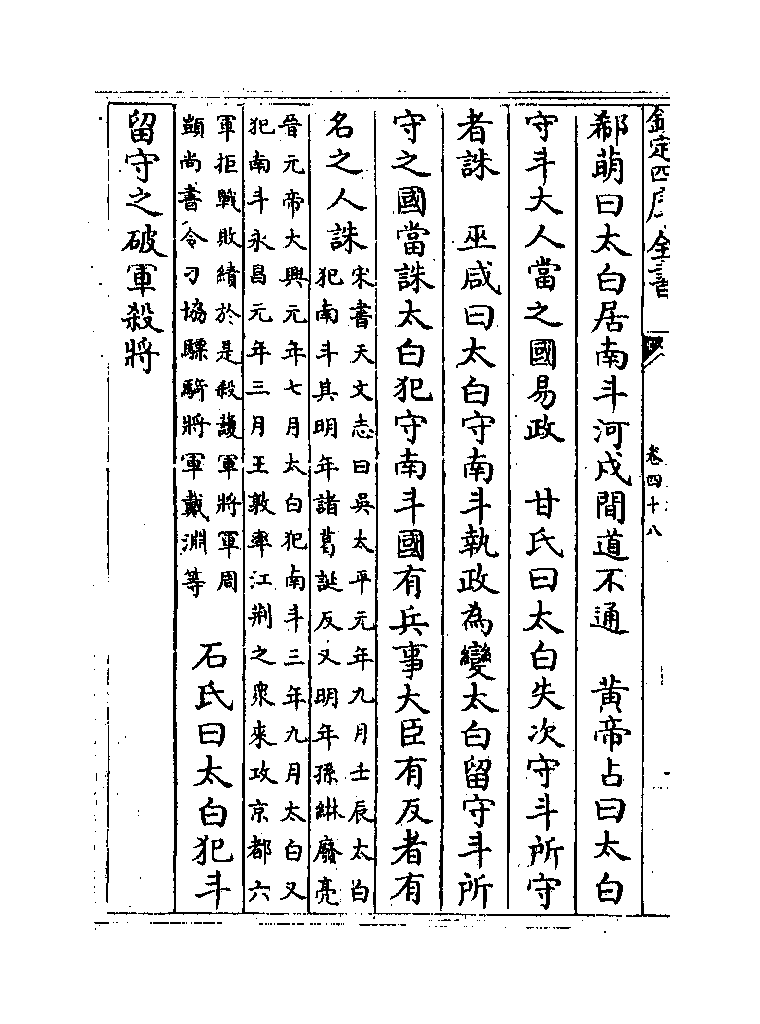 欽定四庫全書
卷四十八
郗萌曰太白居南斗河戍間道不通　黄帝占曰太白
守斗大人當之國易政　甘氏曰太白失次守斗所守
者誅　巫咸曰太白守南斗執政為變太白留守斗所
守之國當誅太白犯守南斗國有兵事大臣有反者有
名之人誅
宋書天文志曰吳太平元年九月壬辰太白
犯南斗其明年諸葛誕反又明年孫綝廢亮
晉元帝大興元年七月太白犯南斗三年九月太白又
犯南斗永昌元年三月王敦率江荆之衆來攻京都六
軍拒戰敗績於是殺護軍將軍周
顗尚書令刁協驃騎將軍戴淵等
石氏曰太白犯斗
留守之破軍殺將